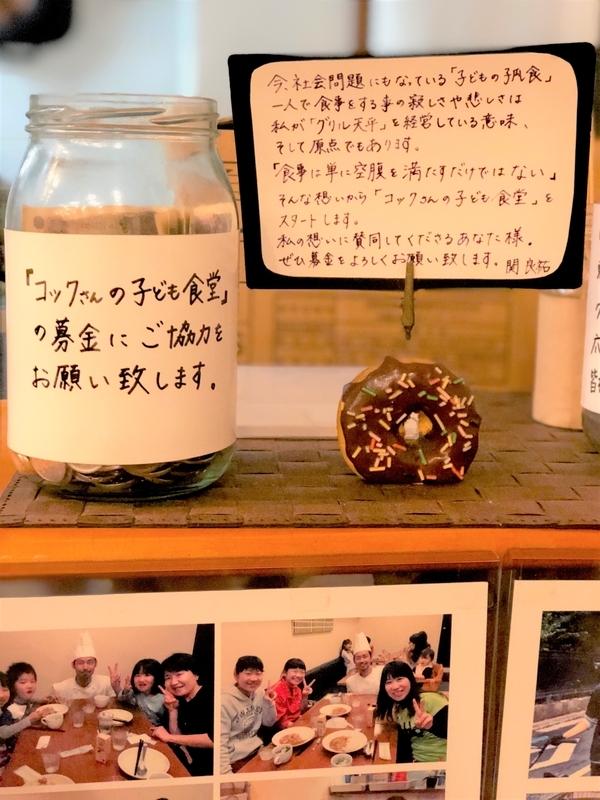 今、社会問題にもなっている「子どもの孤食」
一人で食事をする事の寂しさや悲しさは
私が「グリル天平」を経営している意味、
そして原点でもあります。
「食事は単に空腹を満たすだけではない」
そんな想いから「コックさんの子ども食堂」を
スタートします。
私の想いに賛同してくださるあなた様。
ぜひ募金をよろしくお願い致します。 関 良祐
『コックさんの子ども食堂』
の募金にご協力を
お願い致します。